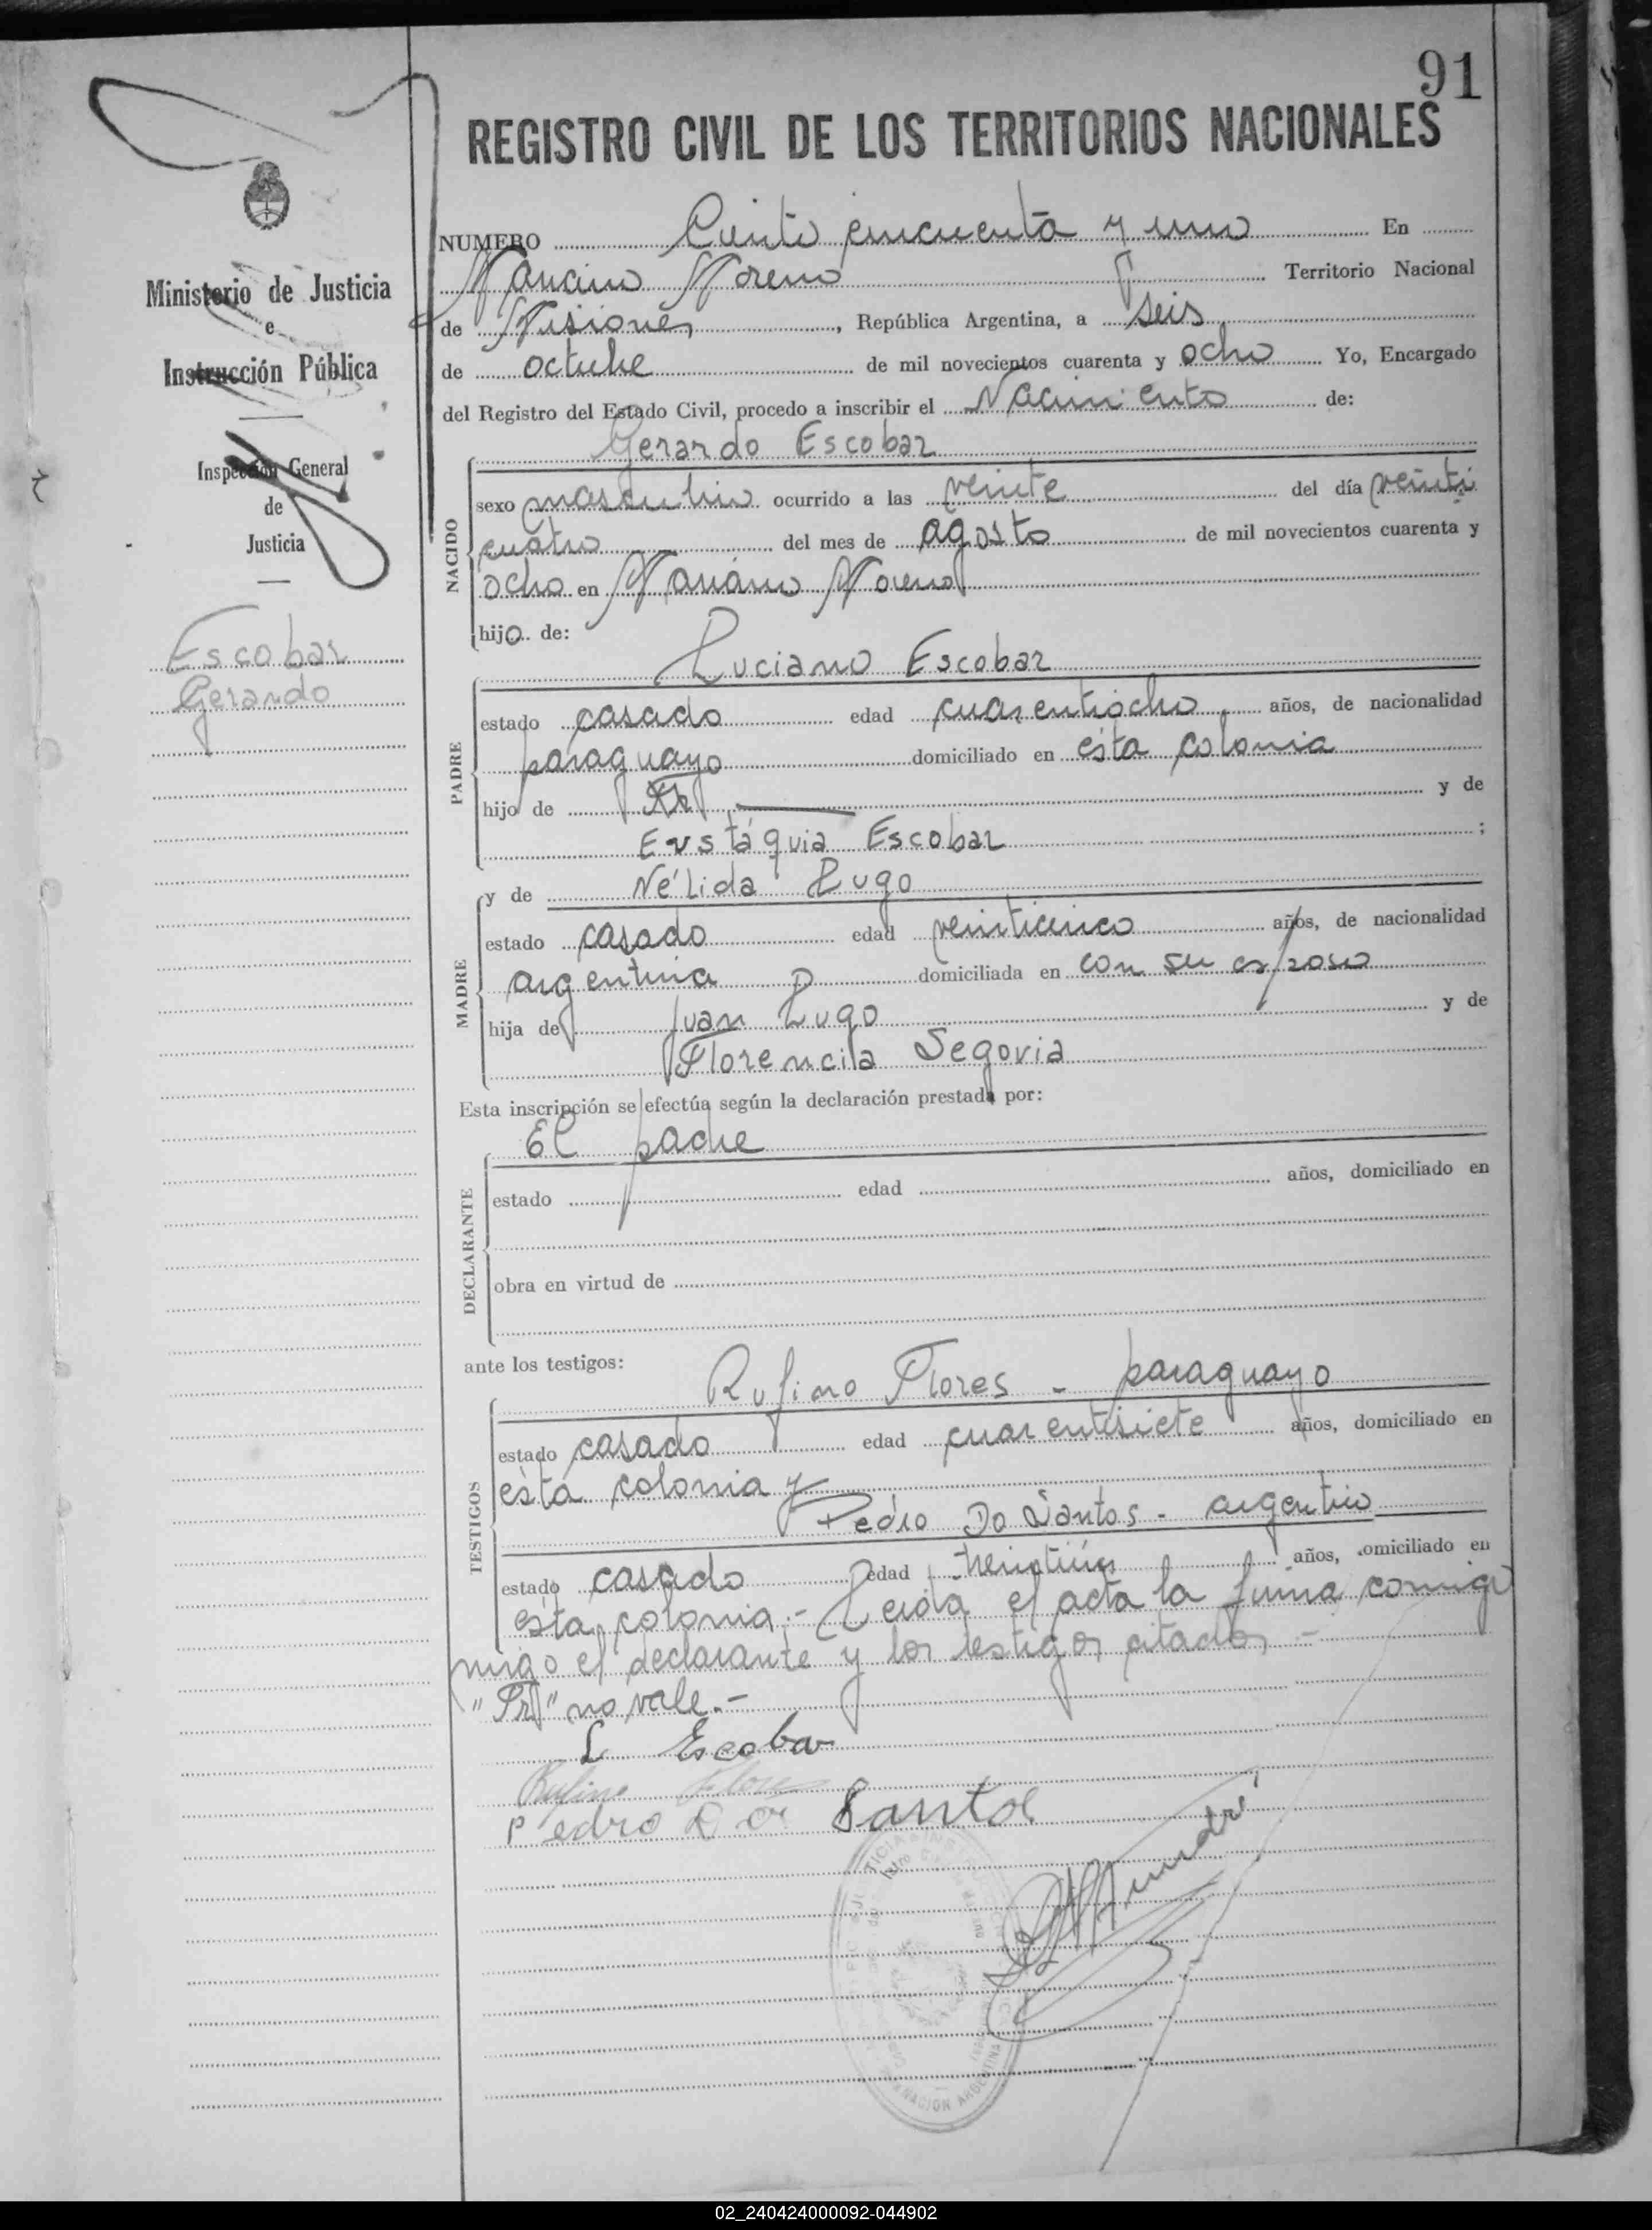 91
REGISTRO CIVIL DE LOS TERRITORIOS NACIONALES
NUMERO Ciento cincuenta y uno En
Mariano Moreno Territorio Nacional
de Misiones, República Argentina, a seis
de octubre de mil novecientos cuarenta y ocho Yo, Encargado
del Registro del Estado Civil, procedo a inscribir el Nacimiento de:
Gerardo Escobar
NACIDO
sexo masculino ocurrido a las veinte del día veinti
cuatro del mes de agosto de mil novecientos cuarenta y
ocho en Mariano Moreno
hijo de:
Luciano Escobar
PADRE
estado casado edad cuarentiocho años, de nacionalidad
paraguayo domiciliado en esta colonia
hijo de y de
Eustáquia Escobar ;
y de Nélida Lugo
MADRE
estado casado edad veinticinco años, de nacionalidad
argentina domiciliada en con su esposo
hija de Juan Lugo y de
Florencia Segovia
Esta inscripción se efectúa según la declaración prestada por:
El padre
DECLARANTE
estado edad años, domiciliado en
obra en virtud de
ante los testigos:
Rufino Flores - paraguayo
TESTIGOS
estado casado edad cuarentisiete años, domiciliado en
esta colonia y
Pedro Do Santos - argentino
estado casado edad treintiún años, domiciliado en
esta colonia.- Leida el acta la firma conmigo
migo el declarante y los testigos citados -
no vale.-
L Escobar
Rufino Flores
Pedro Dos Santos
Ministerio de Justicia
e
Instrucción Pública
Inspección General
de
Justicia
Escobar
Gerardo
NACION ARGENTINA
02_240424000092-044902